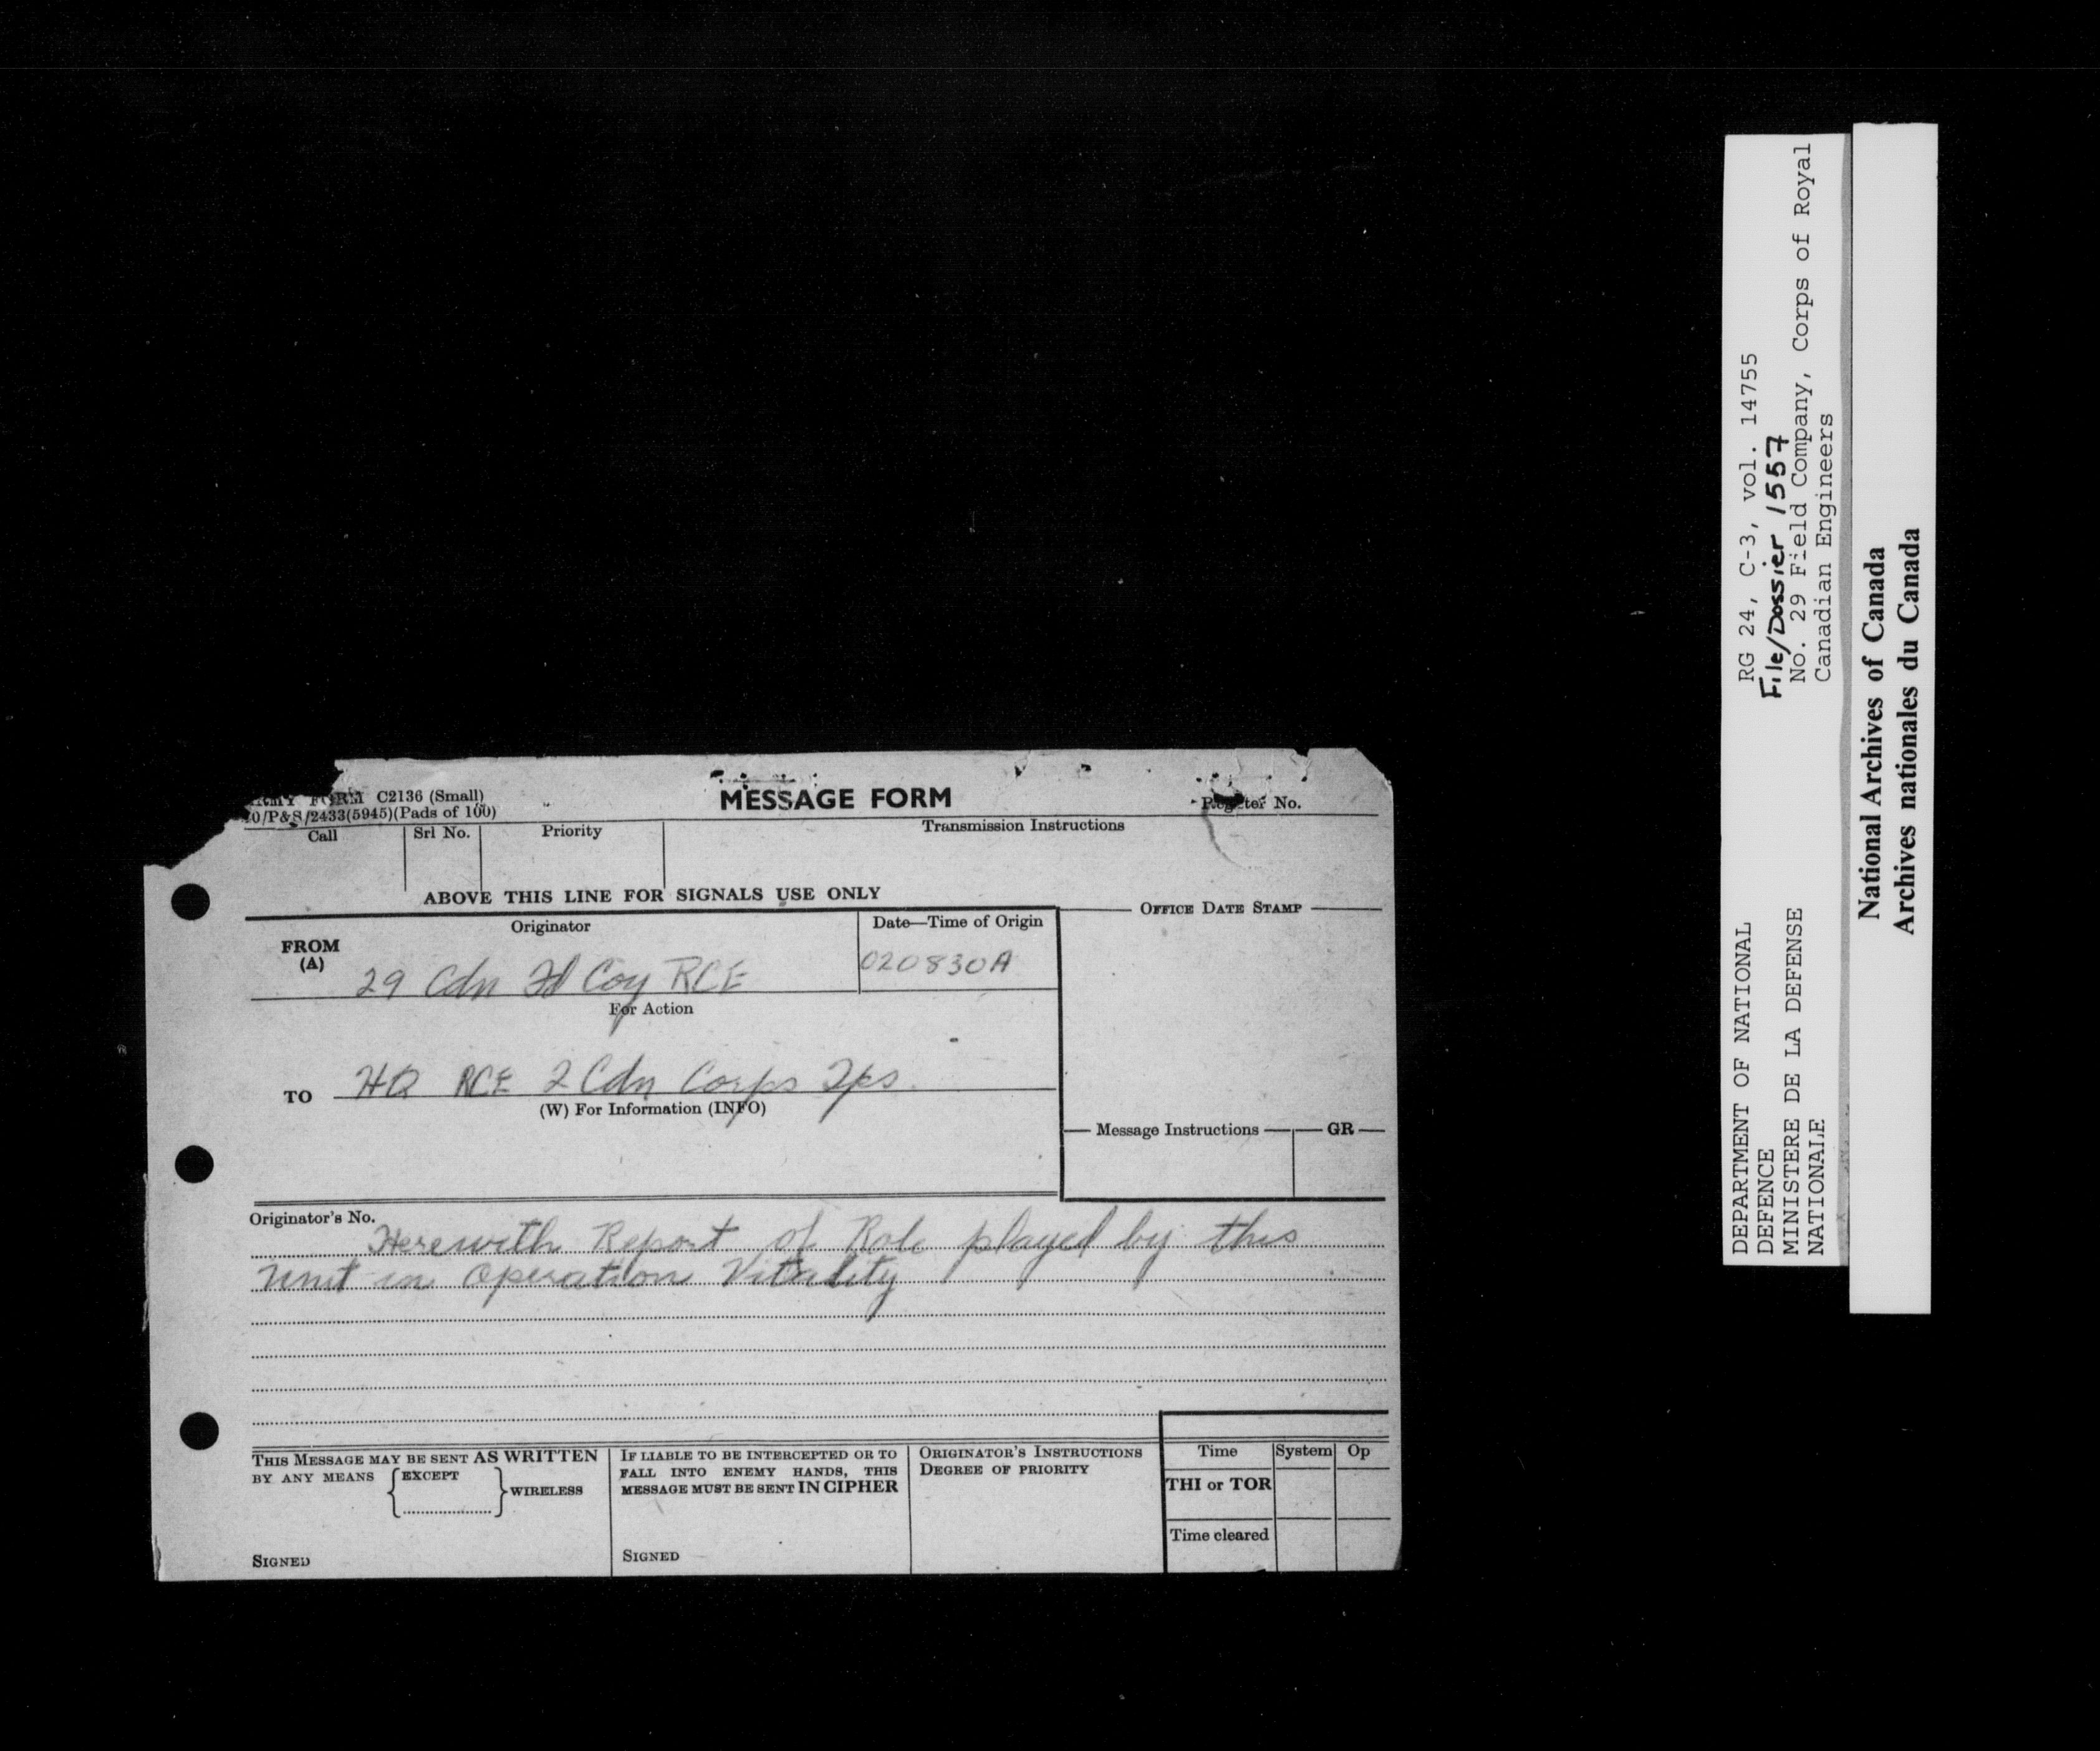 ARMY FORM C2136 (Small)
/P&S/2433(5945)(Pads of 100)
MESSAGE FORM
Register No.
Call
Srl No.
Priority
Transmission Instructions
ABOVE THIS LINE FOR SIGNALS USE ONLY
FROM
(A)
Originator
29 Cdn Fd Coy RCE
Date—Time of Origin
020830A
OFFICE DATE STAMP
For Action
TO
HQ RCE 2 Cdn Corps Tps
(W) For Information (INFO)
Message Instructions
GR
Originator's No.
Herewith Report of Role played by this
Unit in Operation Vitality
THIS MESSAGE MAY BE SENT AS WRITTEN
BY ANY MEANS { EXCEPT } WIRELESS
SIGNED
IF LIABLE TO BE INTERCEPTED OR TO
FALL INTO ENEMY HANDS, THIS
MESSAGE MUST BE SENT IN CIPHER
SIGNED
ORIGINATOR'S INSTRUCTIONS
DEGREE OF PRIORITY
Time
System
Op
THI or TOR
Time cleared
DEPARTMENT OF NATIONAL
DEFENCE
MINISTERE DE LA DEFENSE
NATIONALE
RG 24, C-3, vol. 14755
File/Dossier 1557
No. 29 Field Company, Corps of Royal
Canadian Engineers
National Archives of Canada
Archives nationales du Canada